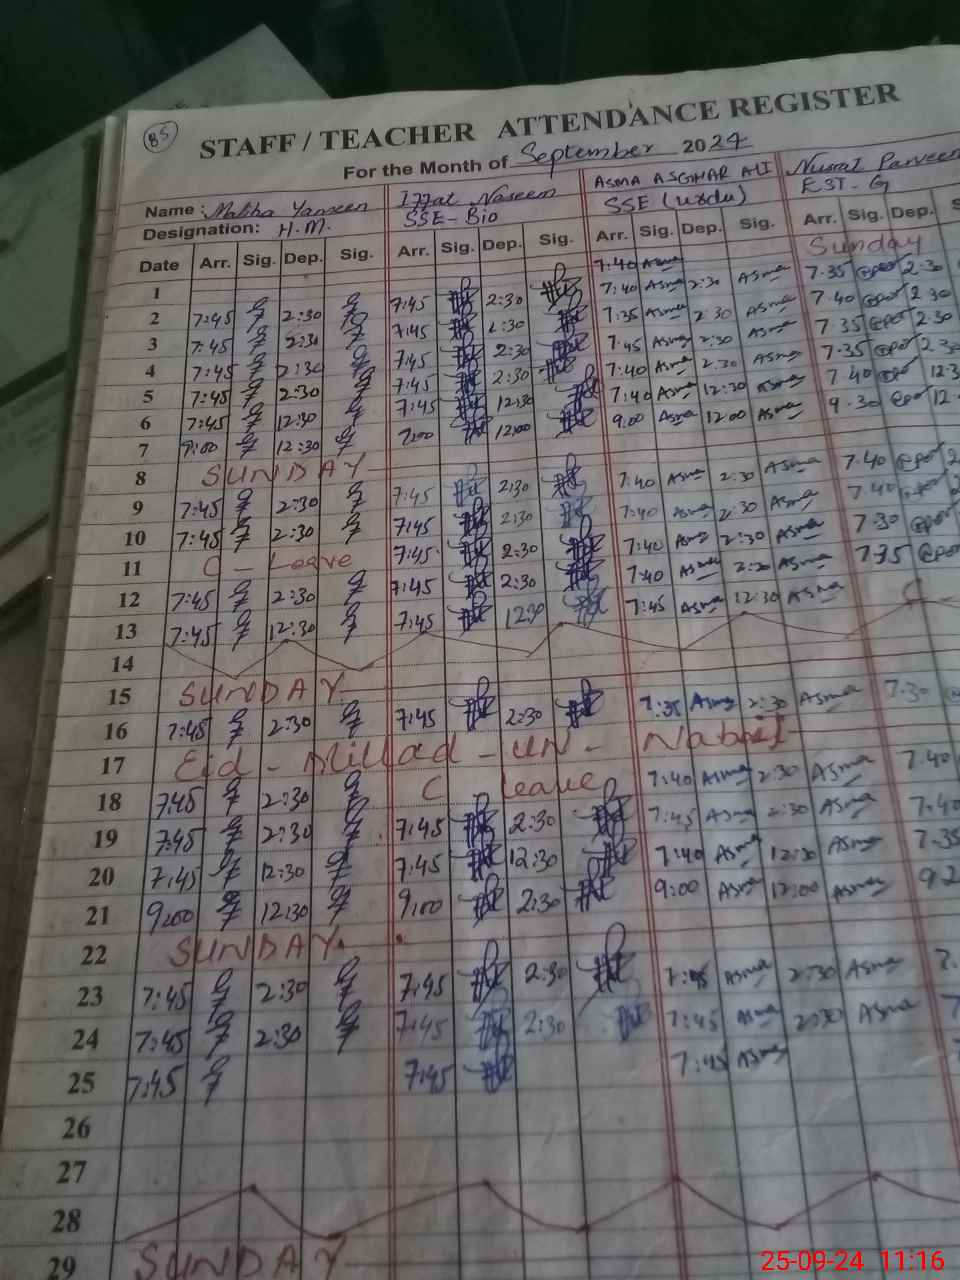 85
STAFF / TEACHER ATTENDANCE REGISTER
For the Month of September 2024
Name: Maliha Yasmeen Izzat Naseem ASMA ASGHAR ALI Nusrat Parveen
Designation: H.M. SSE-Bio SSE (Urdu) EST-G
Date Arr. Sig. Dep. Sig. Arr. Sig. Dep. Sig. Arr. Sig. Dep. Sig. Arr. Sig. Dep.
1 7:40 Asma Sunday
2 7:45 2:30 7:45 2:30 7:40 Asma 2:30 Asma 7.35 2:30
3 7:45 2:30 7:45 2:30 7:35 Asma 2:30 Asma 7.40 2:30
4 7:45 2:30 7:45 2:30 7:45 Asma 2:30 Asma 7.35 2:30
5 7:45 2:30 7:45 2:30 7:40 Asma 2:30 Asma 7.35
6 7:45 12:30 7:45 12:30 7:40 Asma 12:30 Asma 7.40
7 9:00 12:30 12:00 9:00 Asma 12:00 Asma 9.30
8 SUNDAY
9 7:45 2:30 7:45 2:30 7:40 Asma 2:30 Asma 7.40
10 7:45 2:30 7:45 2:30 7:40 Asma 2:30 Asma 7.40
11 C - Leave 7:45 2:30 7:40 Asma 2:30 Asma 7.30
12 7:45 2:30 7:45 2:30 7:40 Asma 2:30 Asma 7.35
13 7:45 12:30 7:45 12:30 7:45 Asma 12:30 Asma C -
14
15 SUNDAY
16 7:45 2:30 7:45 2:30 7:35 Asma 2:30 Asma 7.30
17 Eid - Millad - un - Nabi
18 7:45 2:30 C leave 7:40 Asma 2:30 Asma 7.40
19 7:45 2:30 7:45 2:30 7:45 Asma 2:30 Asma 7.40
20 7:45 12:30 7:45 12:30 7:40 Asma 12:30 Asma 7.35
21 9:00 12:30 9:00 2:30 9:00 Asma 12:00 Asma
22 SUNDAY
23 7:45 2:30 7:45 2:30 7:45 Asma 2:30 Asma
24 7:45 2:30 7:45 2:30 7:45 Asma 2:30 Asma
25 7:45 7:45 7:45 Asma
26
27
28
29 SUNDAY
25-09-24 11:16